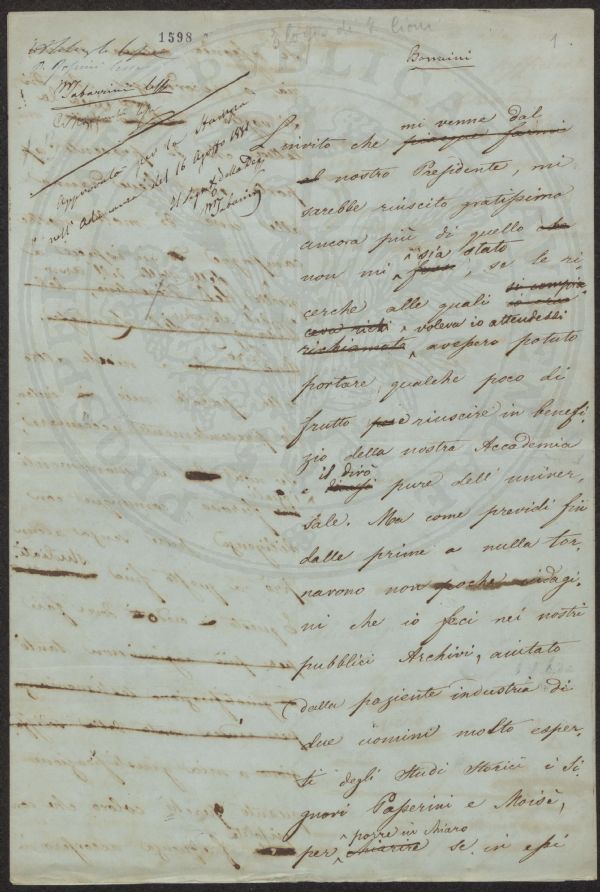 1598
Elogio di
1
Bonaini
Tabarrini
Approvato per la Stampa
nell' Adunanza del 16 Agosto
Il Segret. della
M. Tabarrini
mi venne dal
L'invito che
nostro Presidente, mi
sarebbe riuscito gratissimo
ancora più di quello che
sia stato
non mi fosse, se le ri-
cerche alle quali
voleva io attendessi
richiamato avessero potuto
portare qualche poco di
frutto e riuscire in benefi-
zio della nostra Accademia
il dirò
e pure dell' univer-
sale. Ma come previdi fin
dalle prime a nulla tor-
narono non poche indagi-
ni che io feci nei nostri
pubblici Archivi, aiutato
dalla paziente industria di
due uomini molto esper-
ti degli studi storici i Si-
gnori Passerini e Moisè,
porre in chiaro
per chiarire se in essi